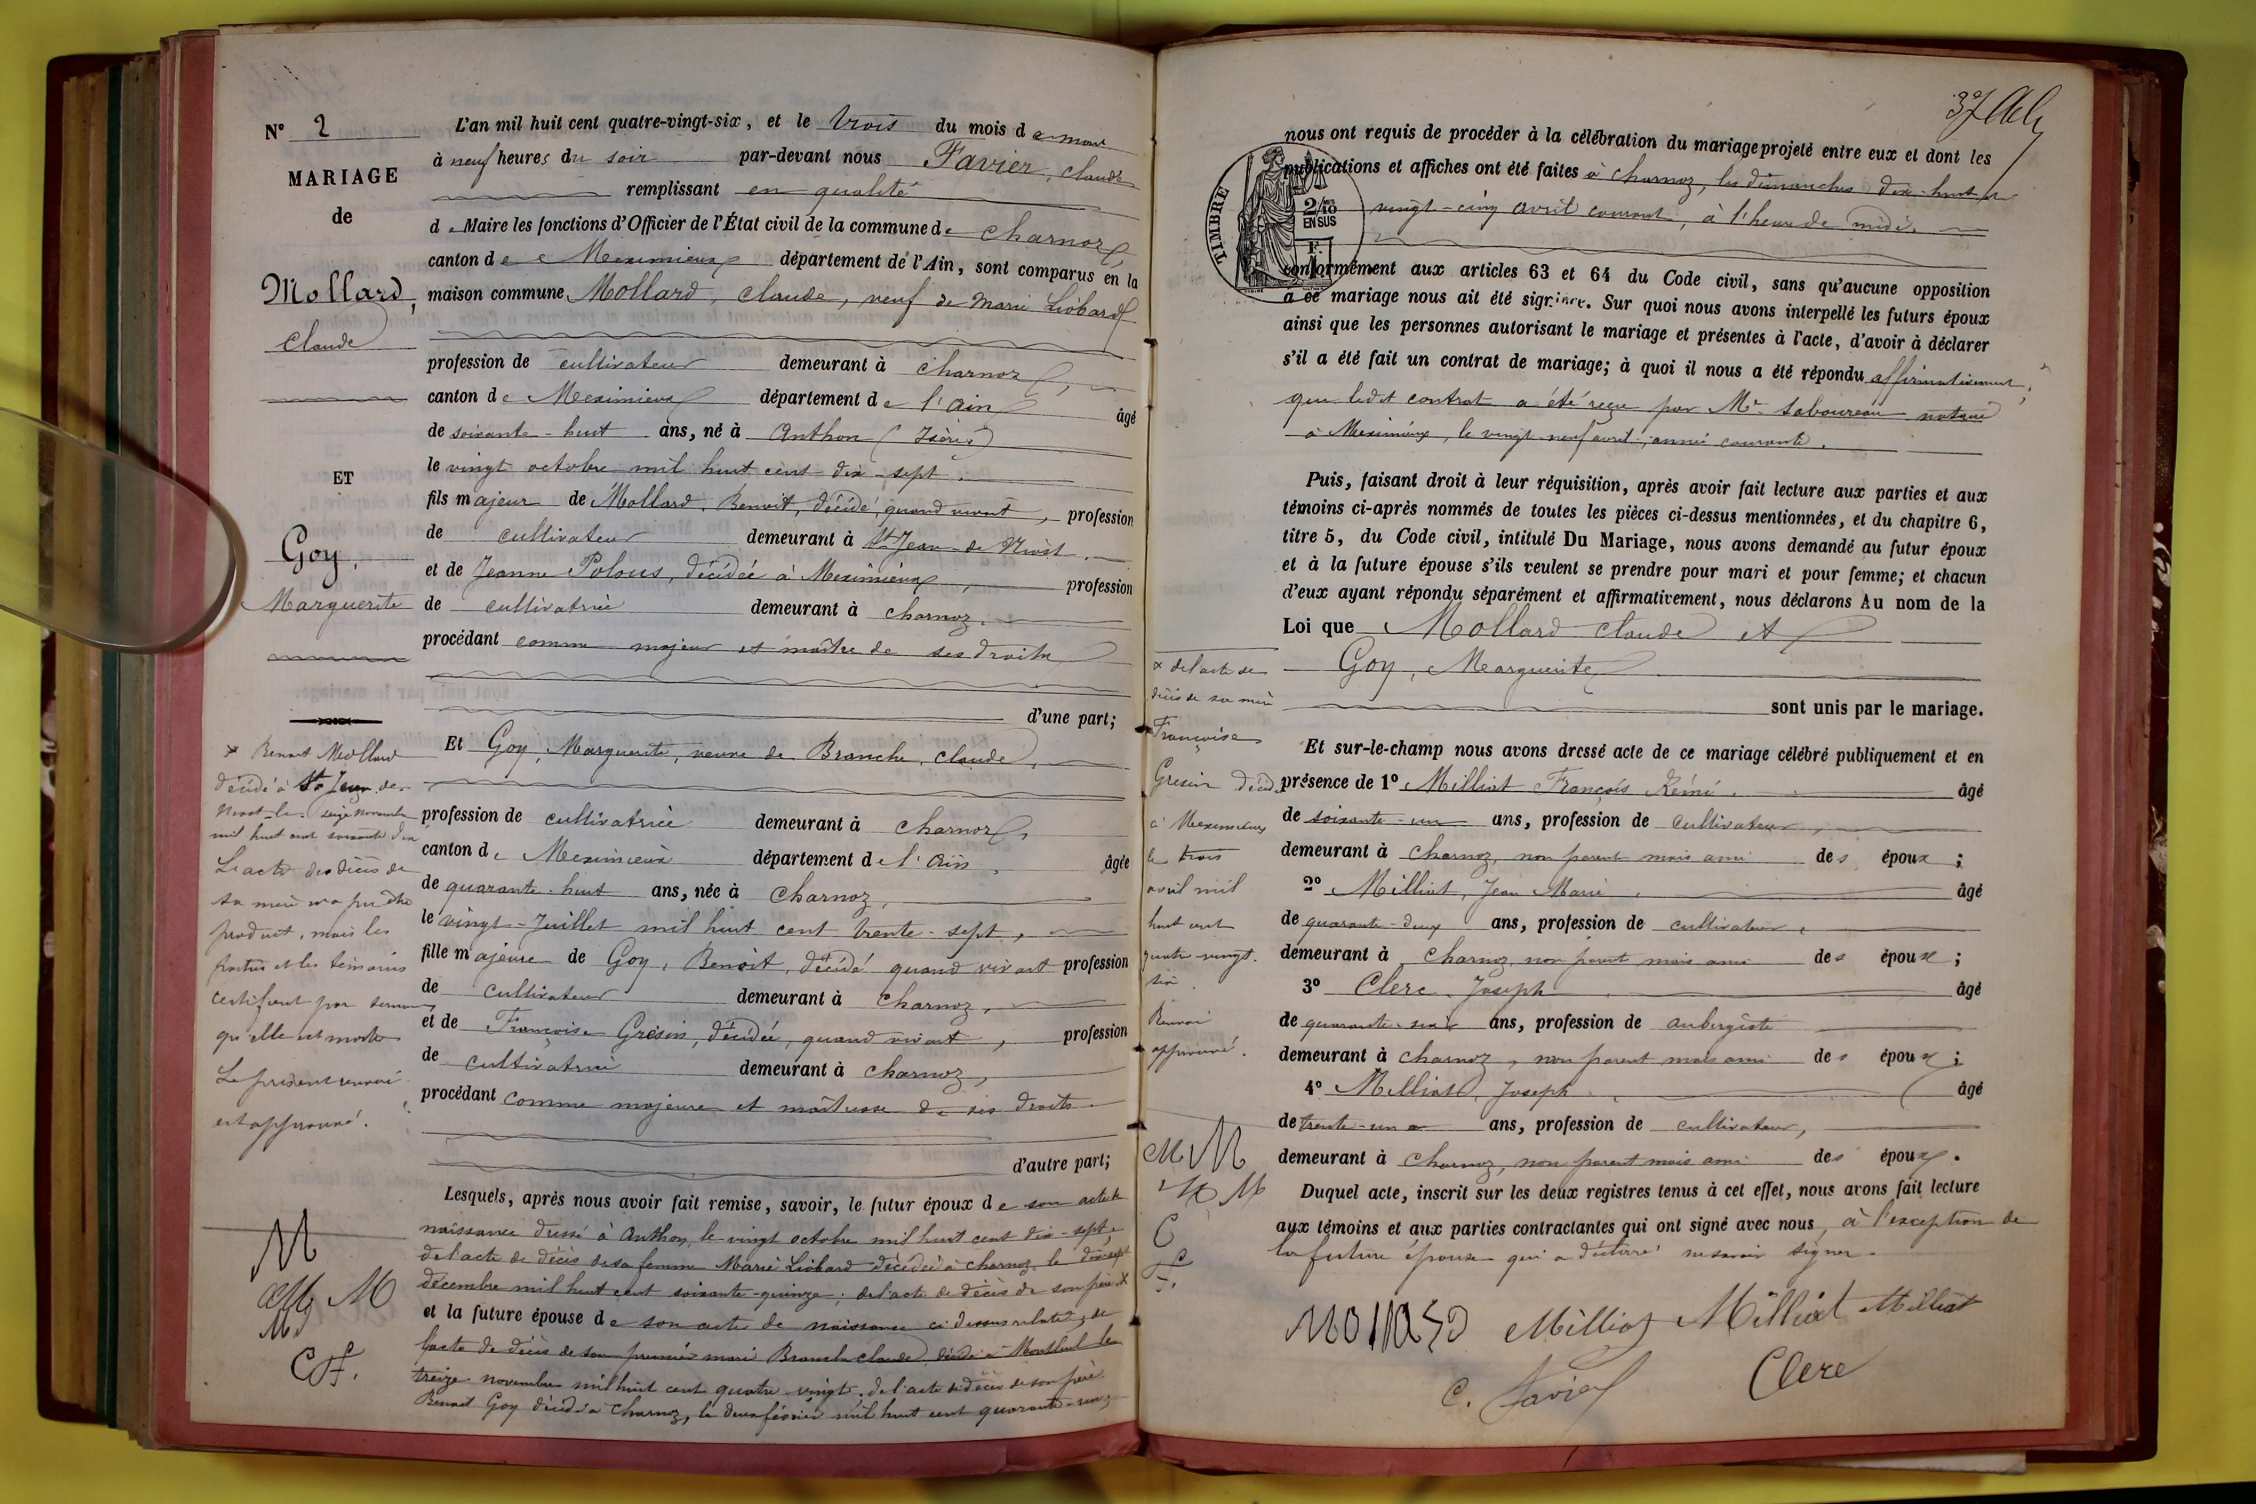 N° 2
MARIAGE
de
Mollard,
Claude
ET
Goy,
Marguerite
L'an mil huit cent quatre-vingt-six, et le trois du mois de mai
à neuf heures du soir par-devant nous Favier, Claude
remplissant en qualité
de Maire les fonctions d'Officier de l'État civil de la commune de Charnoz
canton de Meximieux département de l'Ain, sont comparus en la
maison commune Mollard, Claude, veuf de Marie Liobard
profession de cultivateur demeurant à Charnoz,
canton de Meximieux département de l'Ain âgé
de soixante-huit ans, né à Anthon (Isère)
le vingt octobre mil huit cent dix-sept.
fils majeur de Mollard, Benoit, décédé, quand vivant, profession
de cultivateur demeurant à St Jean-de-Niost.
et de Jeanne Polous, décédée à Meximieux, profession
de cultivatrice demeurant à Charnoz.
procédant comme majeur et maître de ses droits
d'une part;
Et Goy, Marguerite, veuve de Branche, Claude,
profession de cultivatrice demeurant à Charnoz,
canton de Meximieux département de l'Ain, âgée
de quarante-huit ans, née à Charnoz,
le vingt-Juillet mil huit cent trente-sept,
fille majeure de Goy, Benoit, décédé quand vivant profession
de cultivateur demeurant à Charnoz,
et de Françoise Gresin, décédée, quand vivant, profession
de cultivatrice demeurant à Charnoz,
procédant comme majeure et maîtresse de ses droits.
d'autre part;
Lesquels, après nous avoir fait remise, savoir, le futur époux de son acte de
naissance dressé à Anthon, le vingt octobre mil huit cent dix-sept,
de l'acte de décès de sa femme Marie Liobard décédée à Charnoz le dix sept
décembre mil huit cent soixante-quinze; de l'acte de décès de son père x
et la future épouse de son acte de naissance ci dessus relaté, de
l'acte de décès de son premier mari Branche Claude, décédé à Montluel le
treize novembre mil huit cent quatre-vingt. de l'acte de décès de son père
Benoit Goy décédé à Charnoz, le deux février mil huit cent quarante-
x Benoit Mollard
décédé à St Jean de
Niost le seize novembre
mil huit cent soixante
L'acte de décès de
sa mère n'a pu être
produit, mais les
parties et les témoins
certifient par serment
qu'elle est morte
Le présent renvoi
est approuvé.
M
M
C F.
nous ont requis de procéder à la célébration du mariage projeté entre eux et dont les
publications et affiches ont été faites à Charnoz, les dimanches dix-huit et
vingt-cinq avril courant, à l'heure de midi.
TIMBRE
2/10
EN SUS
conformément aux articles 63 et 64 du Code civil, sans qu'aucune opposition
à ce mariage nous ait été signifiée. Sur quoi nous avons interpellé les futurs époux
ainsi que les personnes autorisant le mariage et présentes à l'acte, d'avoir à déclarer
s'il a été fait un contrat de mariage; à quoi il nous a été répondu affirmativement;
que ledit contrat a été reçu par Mr Laboureau notaire
à Meximieux, le vingt-neuf avril, année courante.
Puis, faisant droit à leur réquisition, après avoir fait lecture aux parties et aux
témoins ci-après nommés de toutes les pièces ci-dessus mentionnées, et du chapitre 6,
titre 5, du Code civil, intitulé Du Mariage, nous avons demandé au futur époux
et à la future épouse s'ils veulent se prendre pour mari et pour femme; et chacun
d'eux ayant répondu séparément et affirmativement, nous déclarons Au nom de la
Loi que Mollard Claude et
Goy, Marguerite
sont unis par le mariage.
Et sur-le-champ nous avons dressé acte de ce mariage célébré publiquement et en
présence de 1° Milliat François Rémi. âgé
de soixante-un ans, profession de cultivateur,
demeurant à Charnoz, non parent mais ami des époux;
2° Milliat, Jean Marie, âgé
de quarante-deux ans, profession de cultivateur,
demeurant à Charnoz, non parent mais ami des époux;
3° Clerc, Joseph âgé
de quarante-six ans, profession de aubergiste
demeurant à Charnoz, non parent mais ami des époux;
4° Milliat, Joseph, âgé
de trente-un ans, profession de cultivateur,
demeurant à Charnoz, non parent mais ami des époux.
Duquel acte, inscrit sur les deux registres tenus à cet effet, nous avons fait lecture
aux témoins et aux parties contractantes qui ont signé avec nous, à l'exception de
la future épouse qui a déclaré ne savoir signer.
x de l'acte de
décès de sa mère
Françoise
Gresin décédée
à Meximieux
le trois
avril mil
huit cent
quatre-vingt-
six.
Renvoi
approuvé.
M M
M
C
F.
Mollard Milliat Milliat Milliat
C. Favier Clerc